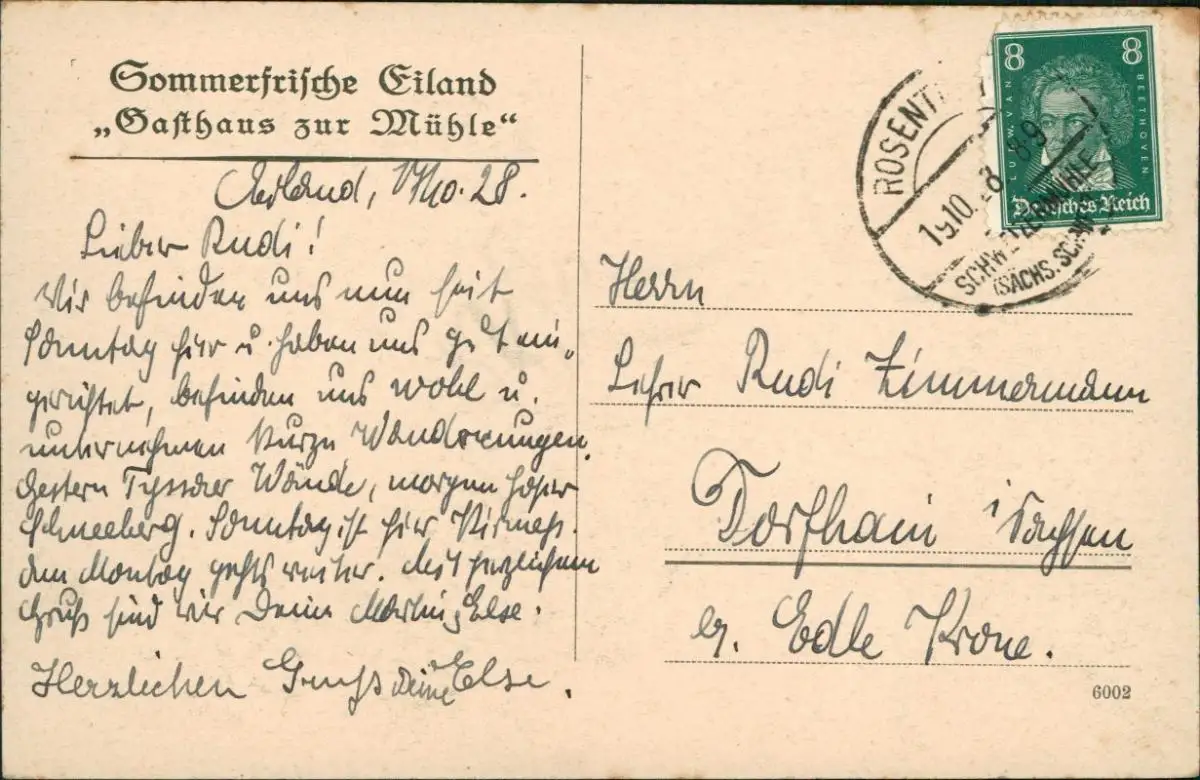 Sommerfrische Eiland
„Gasthaus zur Mühle“
Eiland, 17/10. 28.
Lieber Rudi!
Wir befinden uns nun seit
Sonntag hier u. haben uns gut ein-
gerichtet, befinden uns wohl u.
unternehmen kurze Wanderungen.
Gestern Tyssaer Wände, morgen hoher
Schneeberg. Sonntag ist hier Kirmess.
den Montag gehts weiter. Mit herzlichem
Gruß sind wir Deine Martin, Else.
Herzlichen Gruß deine Else.
8 8
LUDW. VAN
BEETHOVEN
Deutsches Reich
ROSENT
19.10. 28 8-9
SCHWEIZERMÜHLE
(SÄCHS. SCHW
Herrn
Lehrer Rudi Zimmermann
Dorfhain i Sachsen
b. Edle Krone.
6002